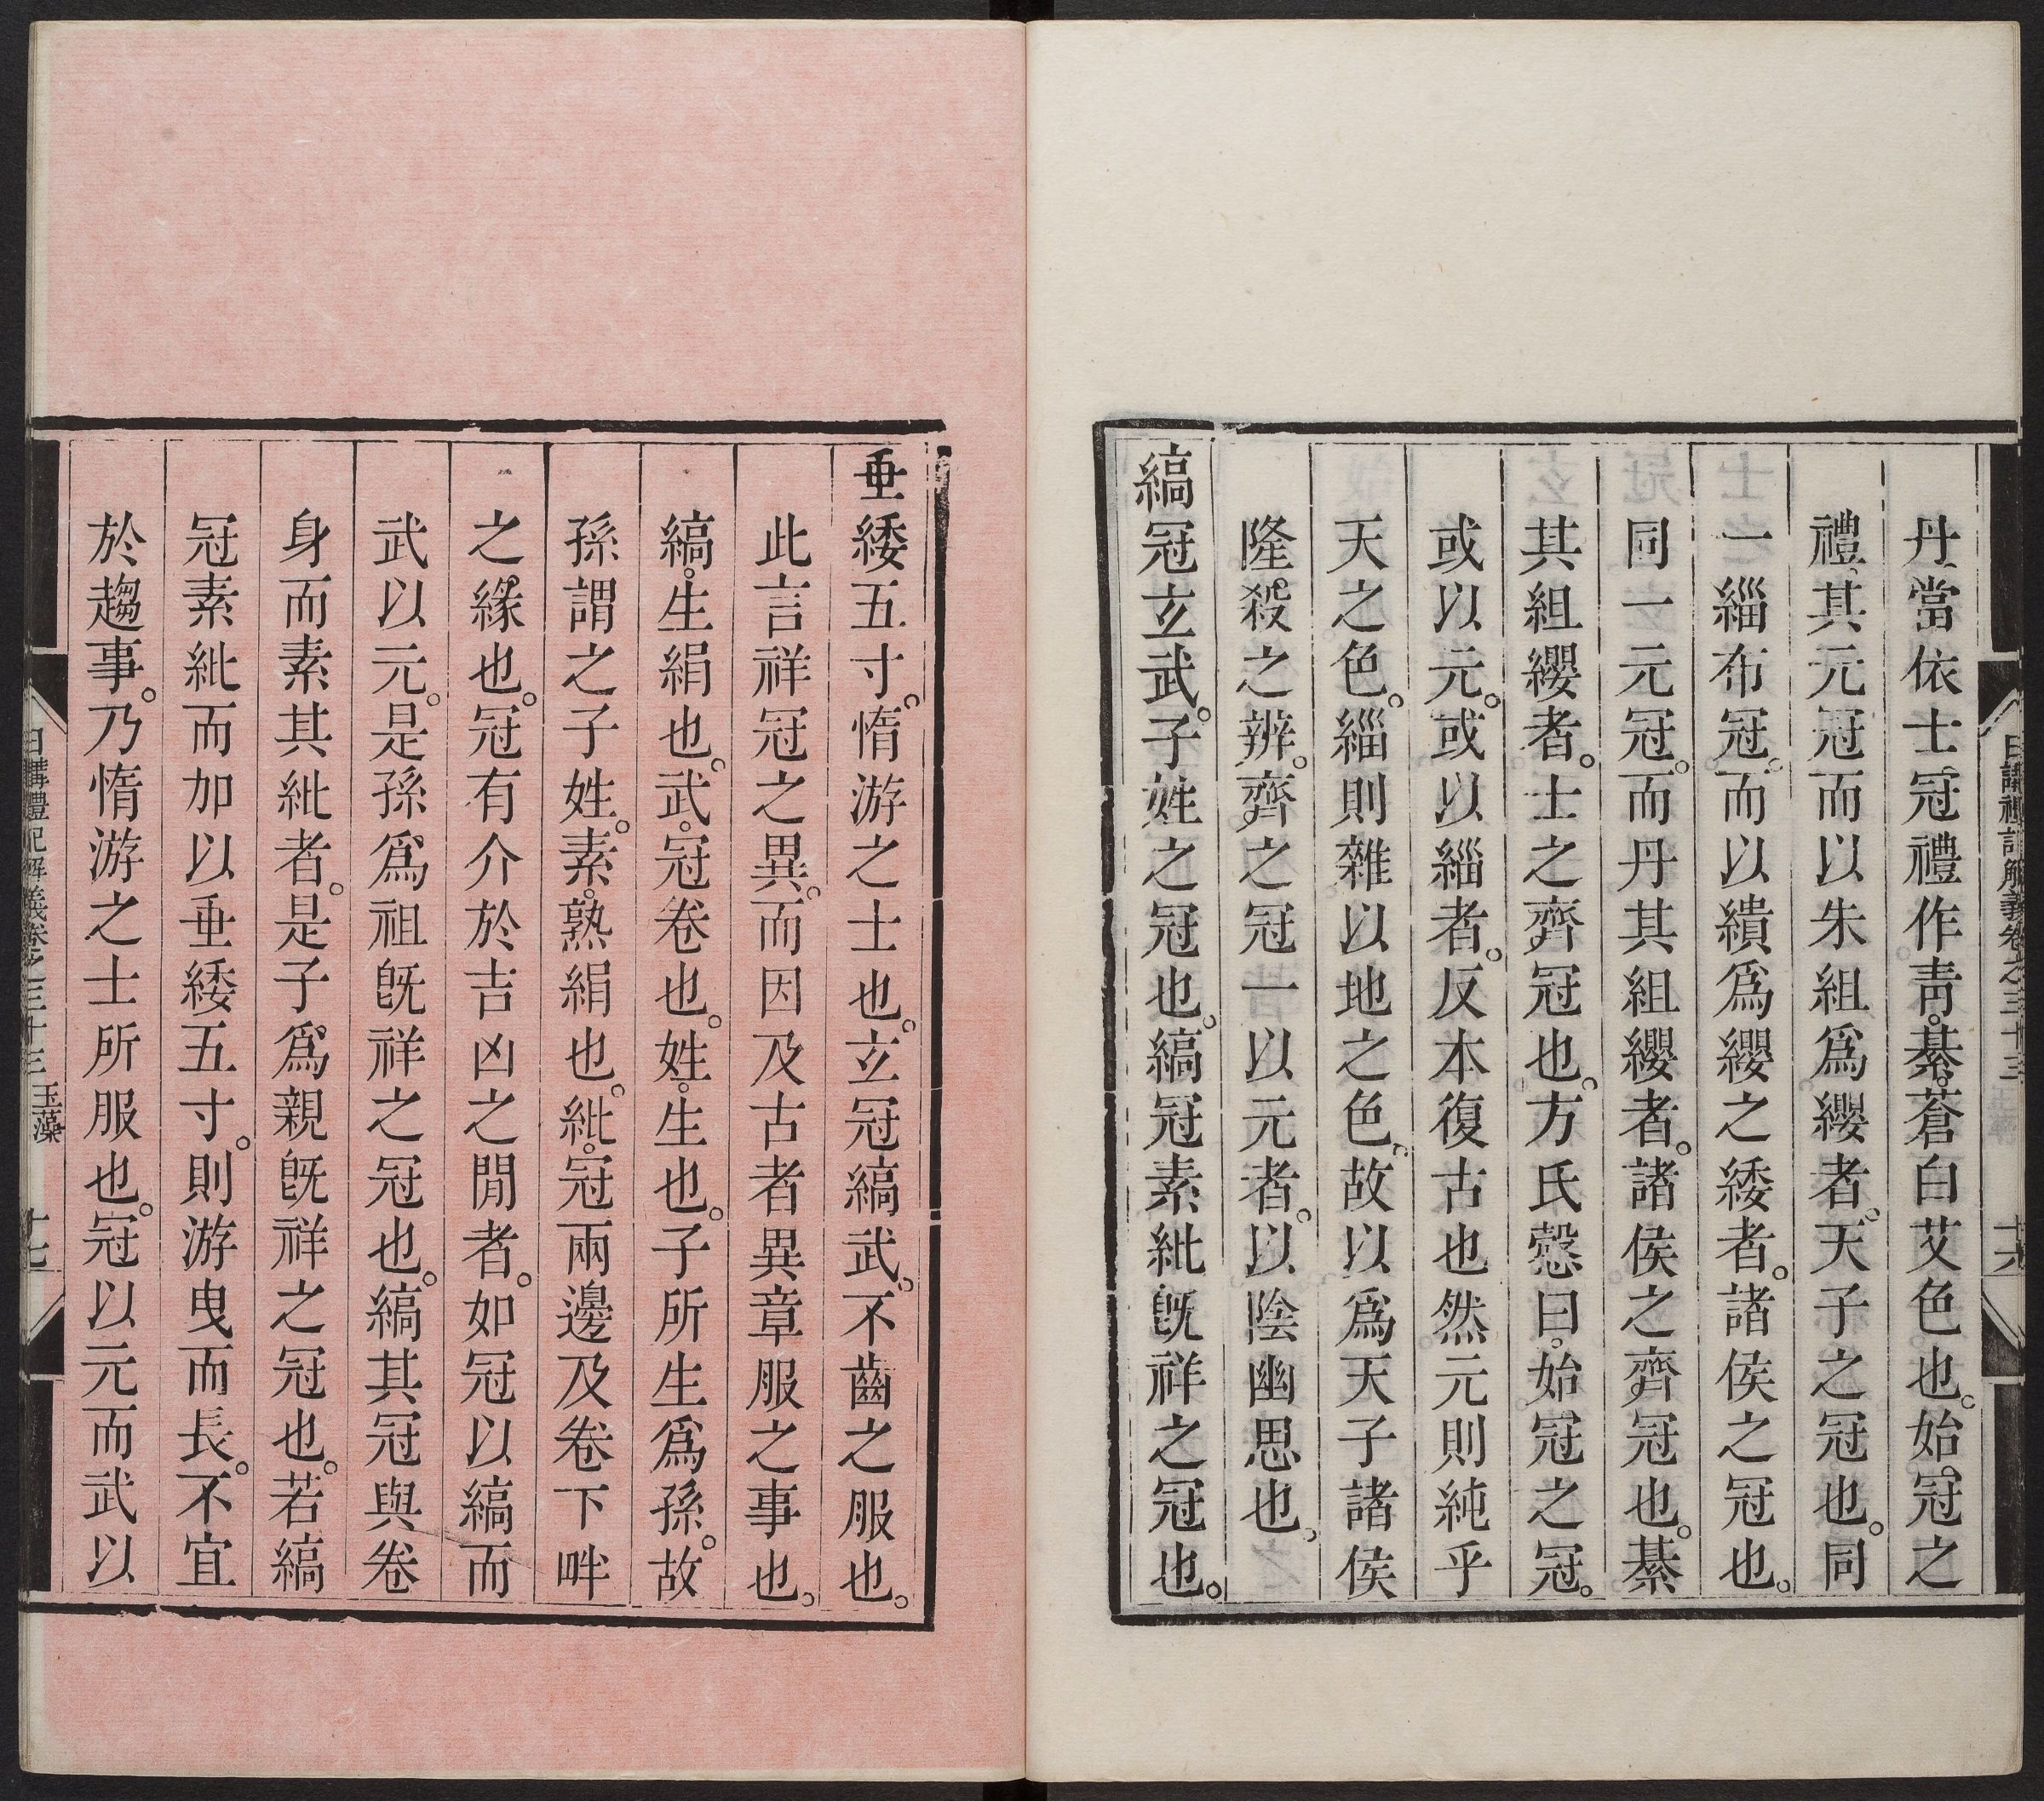 丹當依士冠禮作青綦蒼白艾色也始冠之
禮其元冠而以朱組爲纓者天子之冠也同
一緇布冠而以繢爲纓之緌者諸侯之冠也
同一元冠而丹其組纓者諸侯之齊冠也綦
其組纓者士之齊冠也方氏慤曰始冠之冠
或以元或以緇者反本復古也然元則純乎
天之色緇則雜以地之色故以爲天子諸侯
隆殺之辨齊之冠一以元者以陰幽思也
縞冠玄武子姓之冠也縞冠素紕旣祥之冠也
日講禮記解義卷之三十三
十六
垂緌五寸惰游之士也玄冠縞武不齒之服也
此言祥冠之異而因及古者異章服之事也
縞生絹也武冠卷也姓生也子所生爲孫故
孫謂之子姓素熟絹也紕冠兩邊及卷下畔
之緣也冠有介於吉凶之閒者如冠以縞而
武以元是孫爲祖旣祥之冠也縞其冠與卷
身而素其紕者是子爲親旣祥之冠也若縞
冠素紕而加以垂緌五寸則游曳而長不宜
於趨事乃惰游之士所服也冠以元而武以
日講禮記解義卷之三十三 玉藻
十七